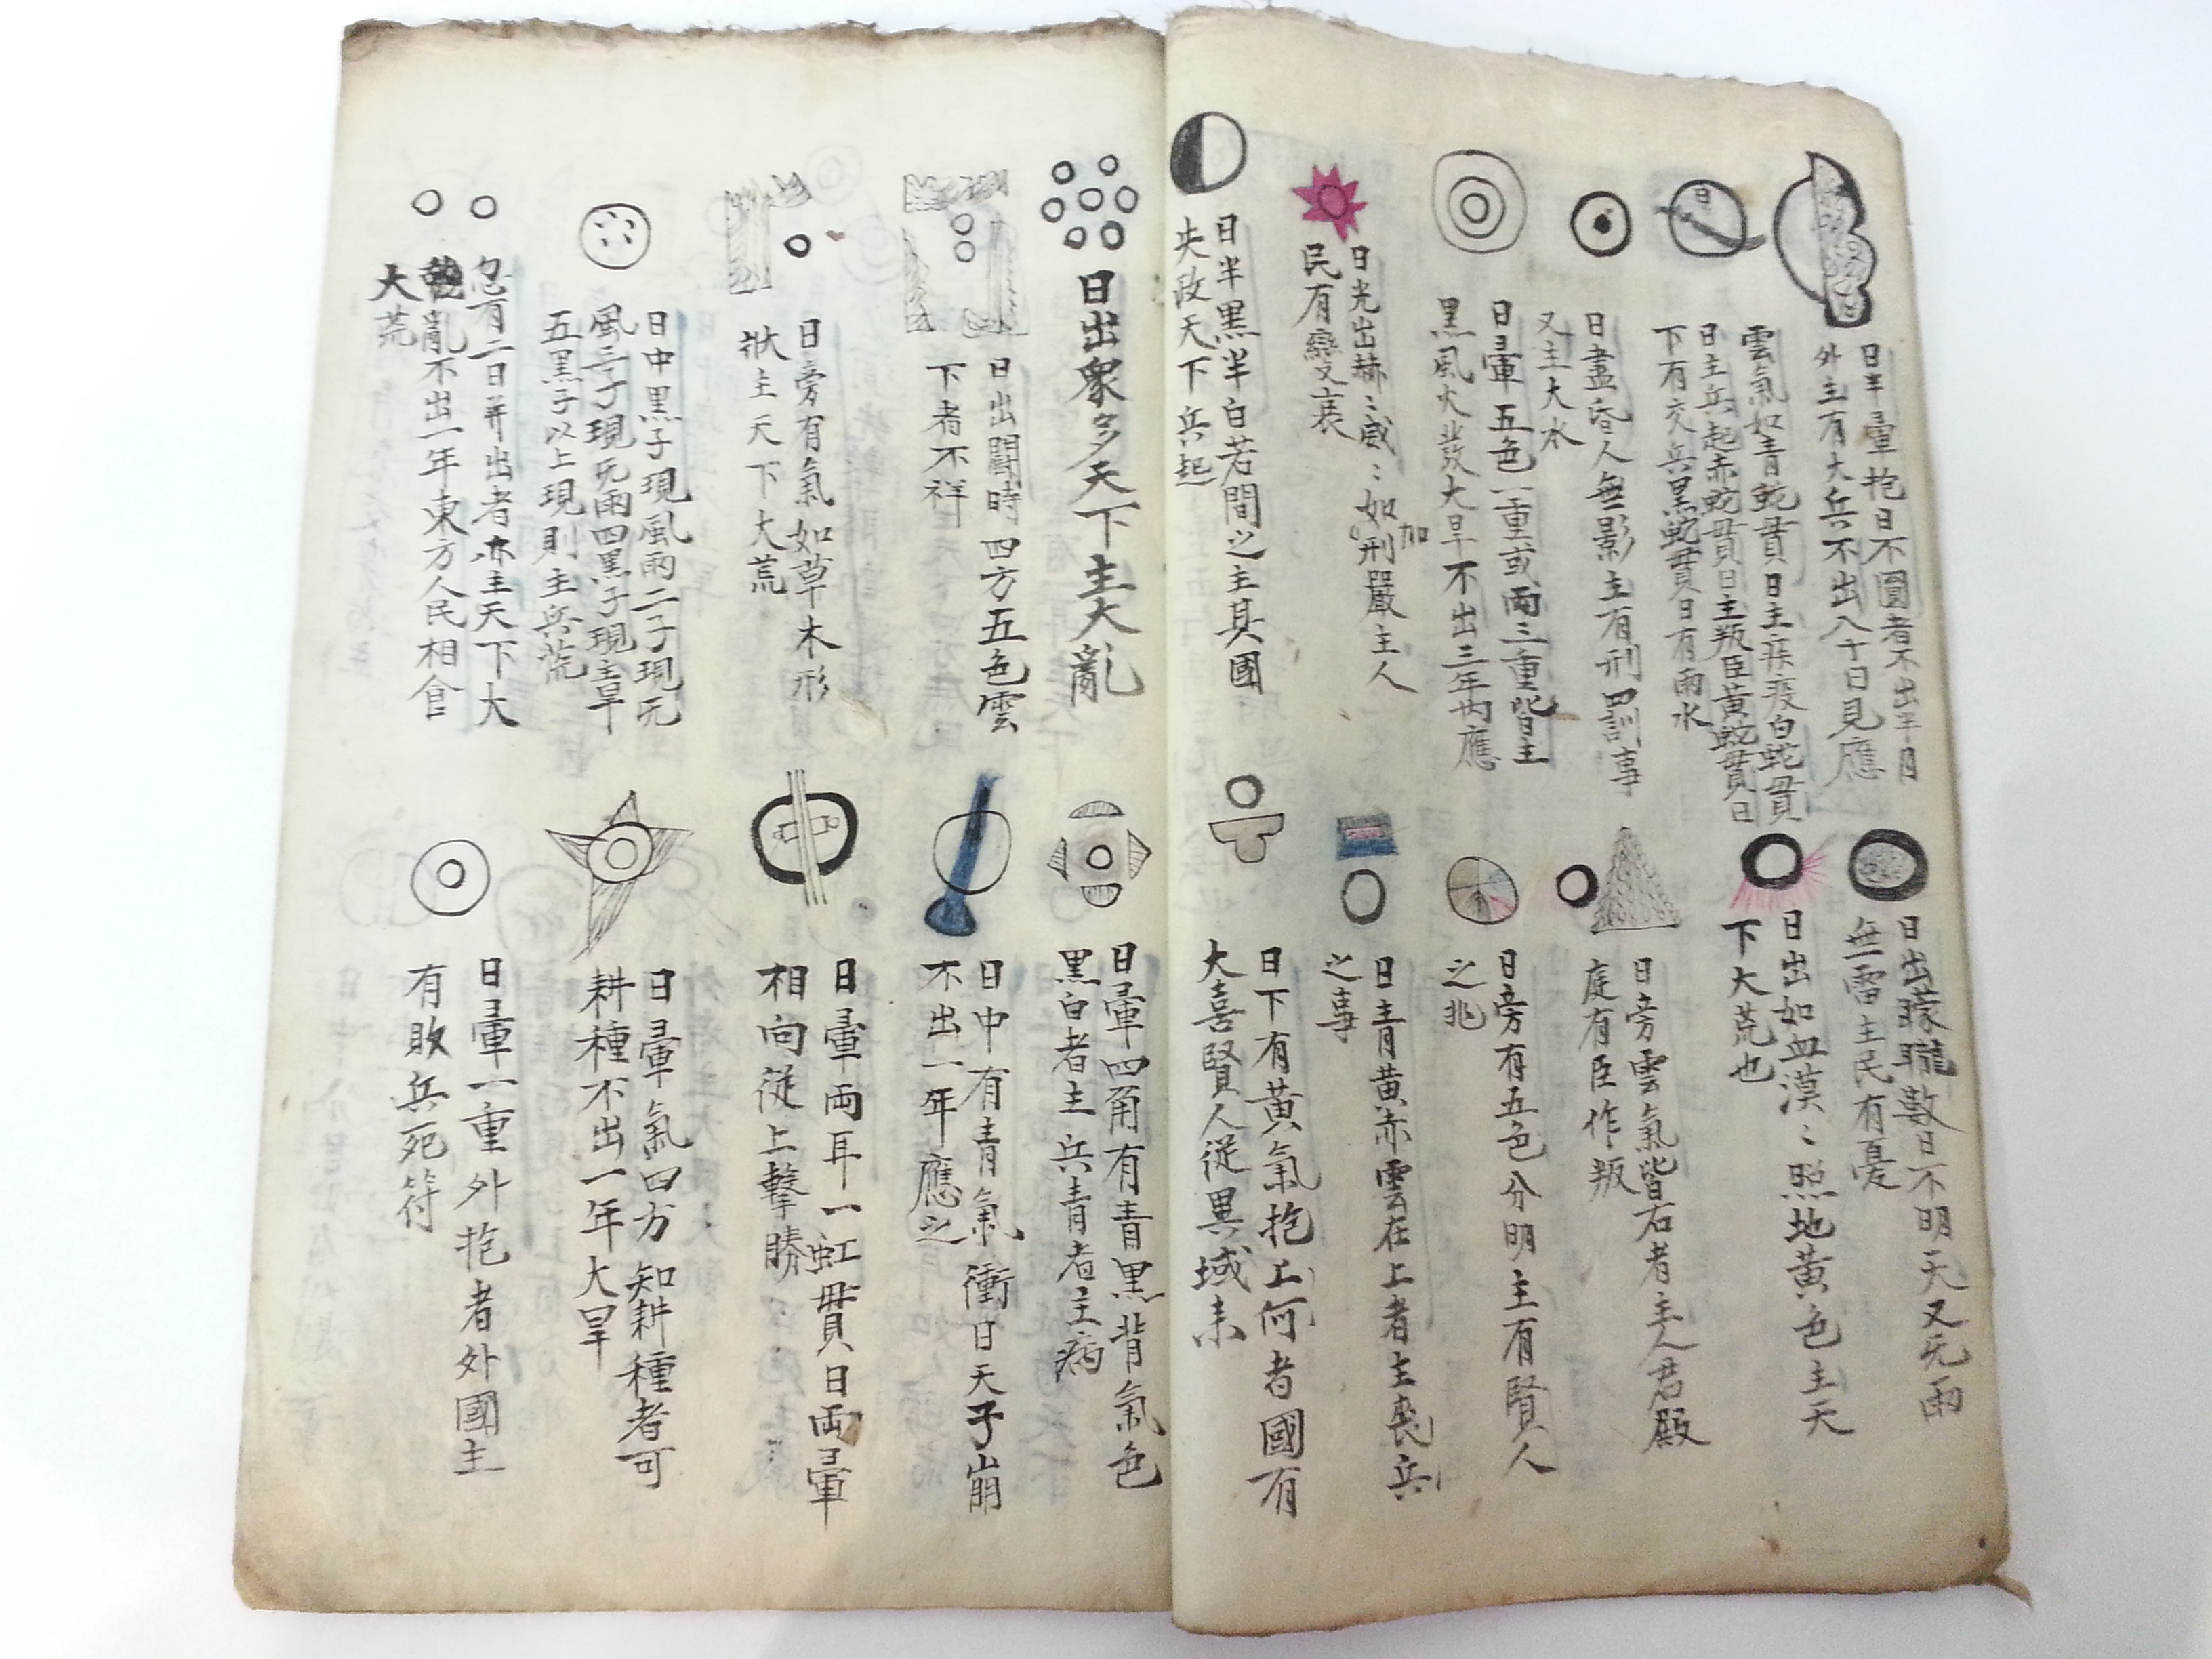 日半暈抱日不圓者不出半月
外主有大兵不出八十日見應
雲氣如青蛇貫日主疾疫白蛇貫
日主兵起赤蛇貫日主叛臣黃蛇貫日
下有交兵黑蛇貫日有雨水
日盡昏人無影主有刑罰事
又主大水
日暈五色一重或兩三重皆主
黑風火發大旱不出三年內應
日光出赫〻威〻如刑嚴主人
加
民有變衰
日半黑半白若間之主其國
失政天下兵起
日出矇矓數日不明天又无雨
無雷主民有憂
日出如血漠〻照地黃色主天
下大荒也
日旁雲氣皆石者主人君殿
庭有臣作叛
日旁有五色分明主有賢人
之兆
日青黃赤雲在上者主喪兵
之事
日下有黃氣抱上何者國有
大喜賢人從異域来
日出眾多天下主大亂
日出鬪時四方五色雲
下者不祥
日旁有氣如草木形
狀主天下大荒
日中黑子現風雨二子現无
風三丁現无雨四黑子現主旱
五黑子以上現則主兵荒
忽有二日并出者亦主天下大
亂不出一年東方人民相食
大荒
日暈四角有青黑背氣色
黑白者主兵青者主病
日中有青氣衝日天子崩
不出一年應之
日暈兩耳一虹貫日兩暈
相向從上擊勝
日暈氣四方知耕種者可
耕種不出一年大旱
日暈一重外抱者外國主
有敗兵死符